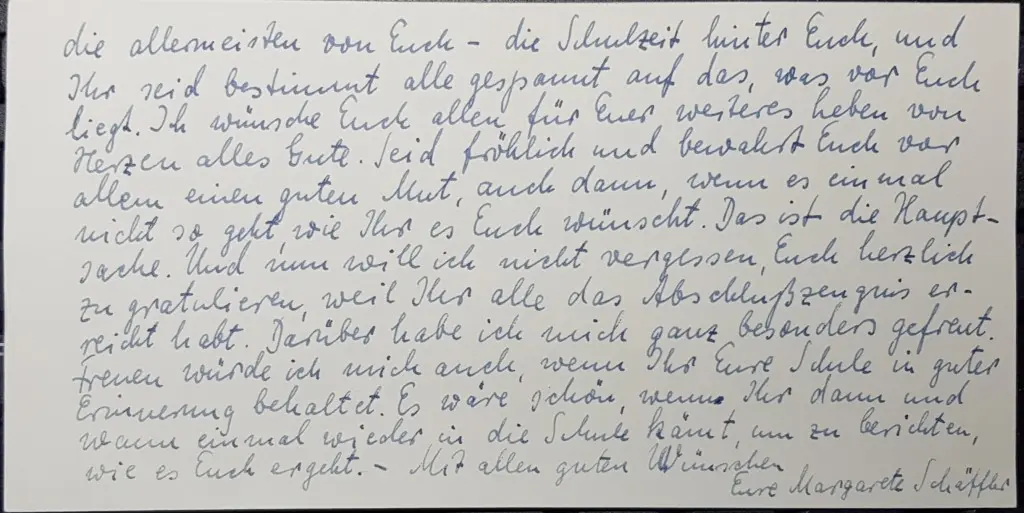 die allermeisten von Euch – die Schulzeit hinter Euch, und
Ihr seid bestimmt alle gespannt auf das, was vor Euch
liegt. Ich wünsche Euch allen für Euer weiteres Leben von
Herzen alles Gute. Seid fröhlich und bewahrt Euch vor
allem einen guten Mut, auch dann, wenn es einmal
nicht so geht, wie Ihr es Euch wünscht. Das ist die Haupt-
sache. Und nun will ich nicht vergessen, Euch herzlich
zu gratulieren, weil Ihr alle das Abschlußzeugnis er-
reicht habt. Darüber habe ich mich ganz besonders gefreut.
Freuen würde ich mich auch, wenn Ihr Eure Schule in guter
Erinnerung behaltet. Es wäre schön, wenn Ihr dann und
wann einmal wieder in die Schule kämt, um zu berichten,
wie es Euch ergeht. – Mit allen guten Wünschen
Eure Margarete Schäffler